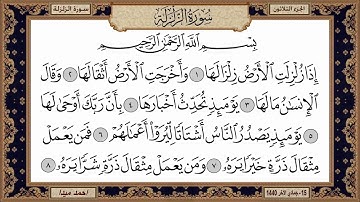 الجزء الثلاثون
سُورَةُ الزَّلْزَلَةِ
سورة الزلزلة
بِسْمِ اللَّهِ الرَّحْمَٰنِ الرَّحِيمِ
إِذَا زُلْزِلَتِ الْأَرْضُ زِلْزَالَهَا ١ وَأَخْرَجَتِ الْأَرْضُ أَثْقَالَهَا ٢ وَقَالَ
الْإِنسَانُ مَا لَهَا ٣ يَوْمَئِذٍ تُحَدِّثُ أَخْبَارَهَا ٤ بِأَنَّ رَبَّكَ أَوْحَىٰ لَهَا
٥ يَوْمَئِذٍ يَصْدُرُ النَّاسُ أَشْتَاتًا لِّيُرَوْا أَعْمَالَهُمْ ٦ فَمَن يَعْمَلْ
مِثْقَالَ ذَرَّةٍ خَيْرًا يَرَهُ ٧ وَمَن يَعْمَلْ مِثْقَالَ ذَرَّةٍ شَرًّا يَرَهُ ٨
15- جمادى الآخر 1440
أحمد